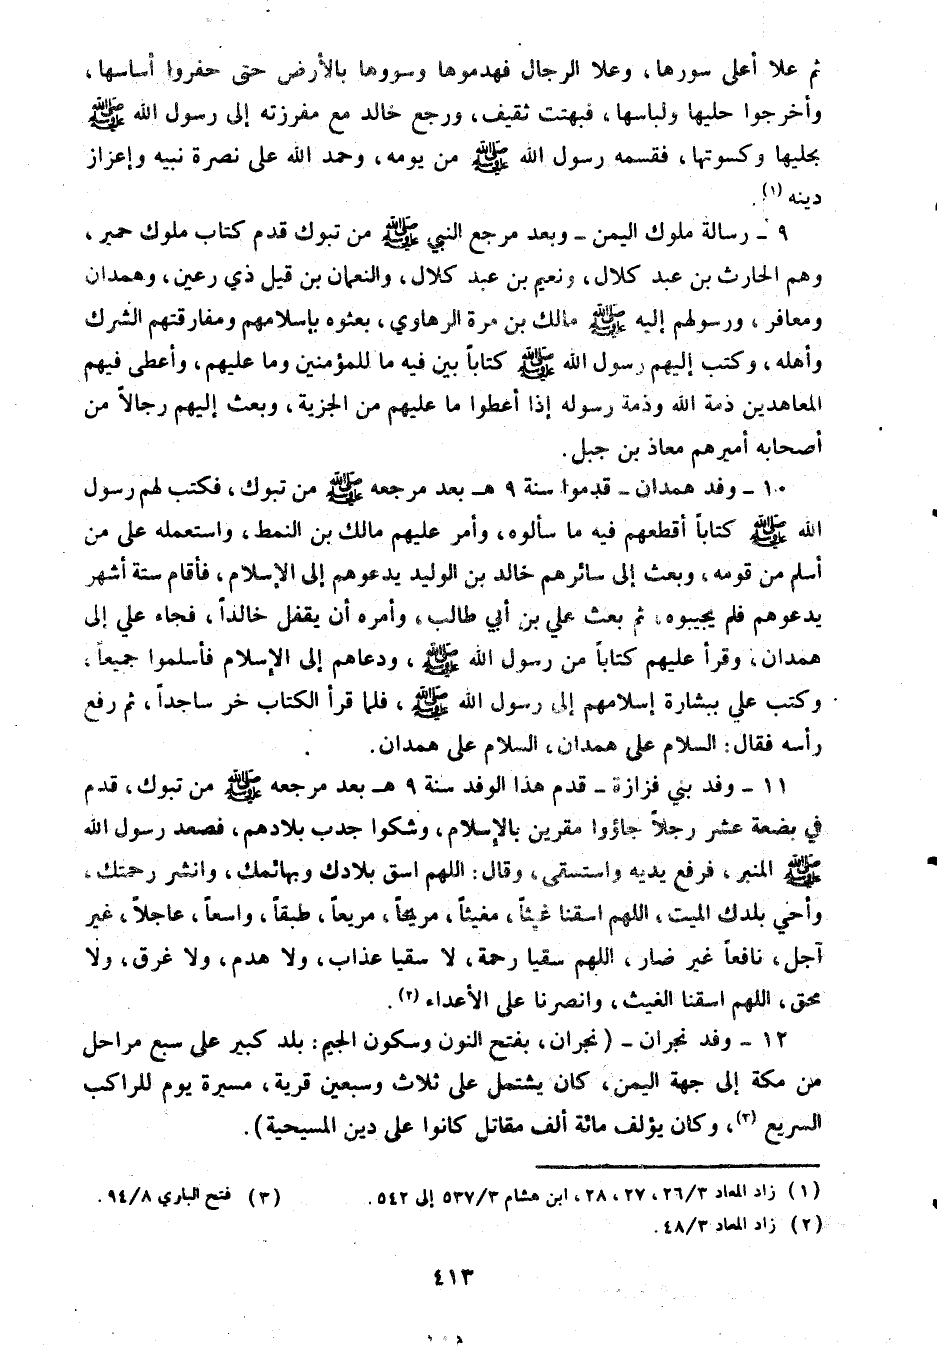 ثم علا أعلى سورها، وعلا الرجال فهدموها وسووها بالأرض حتى حفروا أساسها،
وأخرجوا حليها ولباسها، فبهتت ثقيف، ورجع خالد مع مفرزته إلى رسول الله ﷺ
بحليها وكسوتها، فقسمه رسول الله ﷺ من يومه، وحمد الله على نصرة نبيه وإعزاز
دينه (١).
٩ ـ رسالة ملوك اليمن ـ وبعد مرجع النبي ﷺ من تبوك قدم كتاب ملوك حمير،
وهم الحارث بن عبد كلال، ونعيم بن عبد كلال، والنعمان بن قيل ذي رعين، وهمدان
ومعافر، ورسولهم إليه ﷺ مالك بن مرة الرهاوي، بعثوه بإسلامهم ومفارقتهم الشرك
وأهله، وكتب إليهم رسول الله ﷺ كتاباً بين فيه ما للمؤمنين وما عليهم، وأعطى فيهم
المعاهدين ذمة الله وذمة رسوله إذا أعطوا ما عليهم من الجزية، وبعث إليهم رجالاً من
أصحابه أميرهم معاذ بن جبل.
١٠ ـ وفد همدان ـ قدموا سنة ٩ هـ بعد مرجعه ﷺ من تبوك، فكتب لهم رسول
الله ﷺ كتاباً أقطعهم فيه ما سألوه، وأمر عليهم مالك بن النمط، واستعمله على من
أسلم من قومه، وبعث إلى سائرهم خالد بن الوليد يدعوهم إلى الإسلام، فأقام ستة أشهر
يدعوهم فلم يجيبوه، ثم بعث علي بن أبي طالب، وأمره أن يقفل خالداً، فجاء علي إلى
همدان، وقرأ عليهم كتاباً من رسول الله ﷺ، ودعاهم إلى الإسلام فأسلموا جميعاً،
وكتب علي ببشارة إسلامهم إلى رسول الله ﷺ، فلما قرأ الكتاب خر ساجداً، ثم رفع
رأسه فقال: السلام على همدان، السلام على همدان.
١١ ـ وفد بني فزازة ـ قدم هذا الوفد سنة ٩ هـ بعد مرجعه ﷺ من تبوك، قدم
في بضعة عشر رجلاً جاؤوا مقرين بالإسلام، وشكوا جدب بلادهم، فصعد رسول الله
ﷺ المنبر، فرفع يديه واستسقى، وقال: اللهم اسق بلادك وبهائمك، وانشر رحمتك،
وأحي بلدك الميت، اللهم اسقنا غيثاً، مغيثاً، مريحاً، مريعاً، طبقاً، واسعاً، عاجلاً، غير
آجل، نافعاً غير ضار، اللهم سقيا رحمة، لا سقيا عذاب، ولا هدم، ولا غرق، ولا
محق، اللهم اسقنا الغيث، وانصرنا على الأعداء (٢).
١٢ ـ وفد نجران ـ (نجران، بفتح النون وسكون الجيم: بلد كبير على سبع مراحل
من مكة إلى جهة اليمن، كان يشتمل على ثلاث وسبعين قرية، مسيرة يوم للراكب
السريع (٣)، وكان يؤلف مائة ألف مقاتل كانوا على دين المسيحية).
(١) زاد المعاد ٢٦/٣، ٢٧، ٢٨، ابن هشام ٥٣٧/٣ إلى ٥٤٢. (٣) فتح الباري ٩٤/٨.
(٢) زاد المعاد ٤٨/٣.
٤١٣